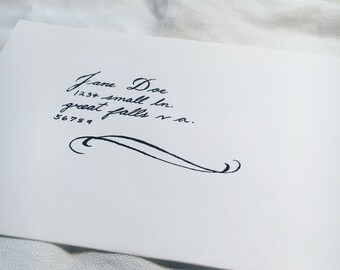 Jane Doe
1234 small ln.
great falls v a.
56789